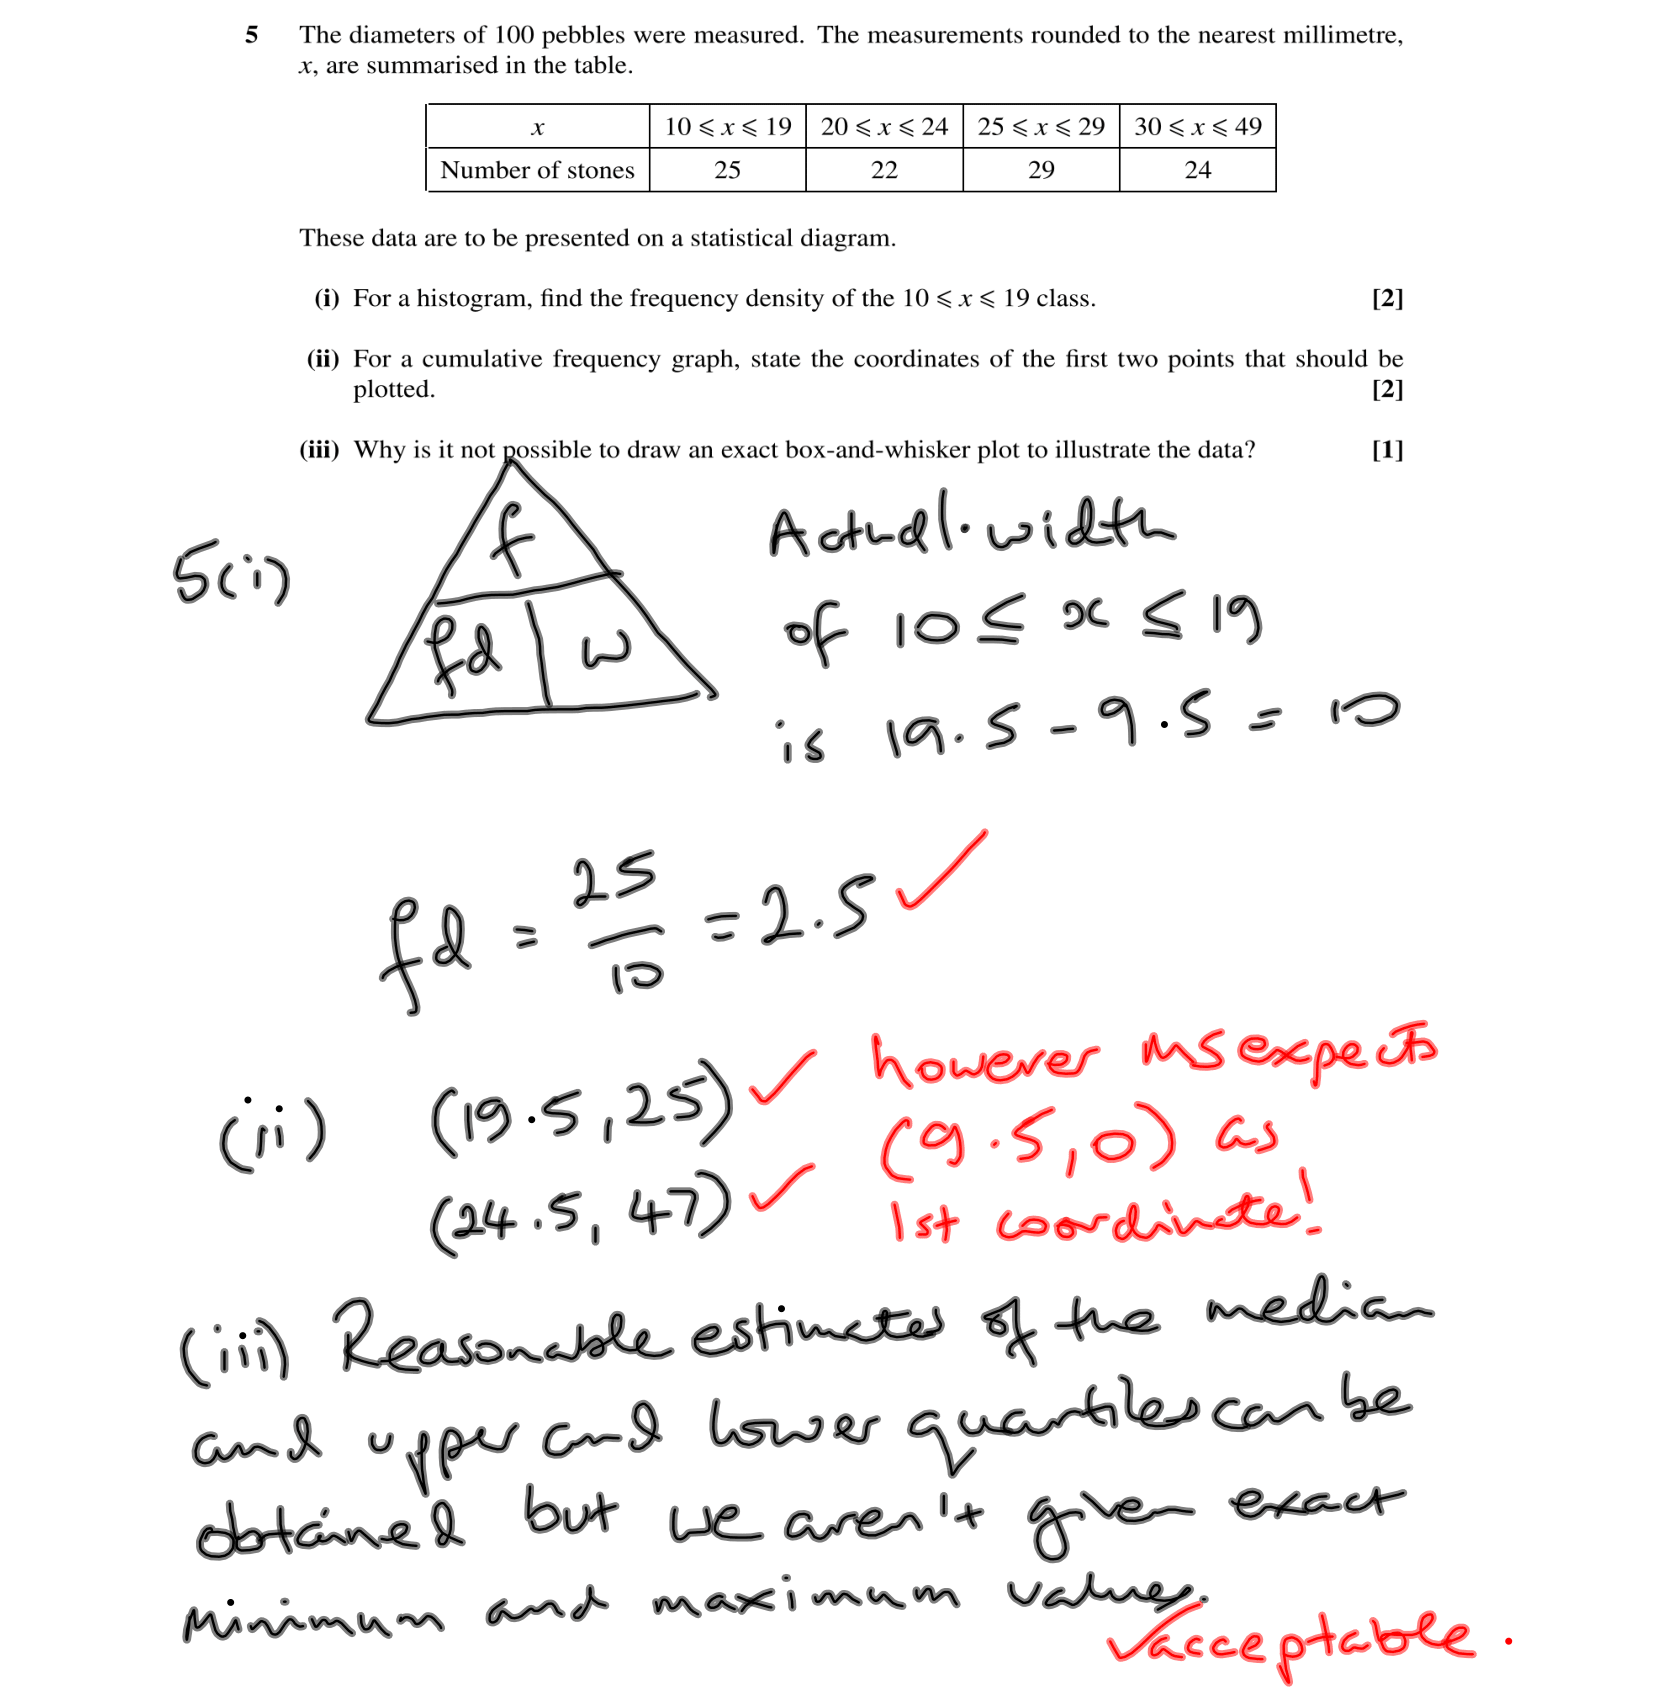 5 The diameters of 100 pebbles were measured. The measurements rounded to the nearest millimetre,
x, are summarised in the table.
x 10 ⩽ x ⩽ 19 20 ⩽ x ⩽ 24 25 ⩽ x ⩽ 29 30 ⩽ x ⩽ 49
Number of stones 25 22 29 24
These data are to be presented on a statistical diagram.
(i) For a histogram, find the frequency density of the 10 ⩽ x ⩽ 19 class. [2]
(ii) For a cumulative frequency graph, state the coordinates of the first two points that should be
plotted. [2]
(iii) Why is it not possible to draw an exact box-and-whisker plot to illustrate the data? [1]
5(i)
f
fd w
Actual width
of 10 ≤ x ≤ 19
is 19.5 - 9.5 = 10
fd = 25/10 = 2.5 ✓
(ii) (19.5, 25) ✓
(24.5, 47) ✓
however MS expects
(9.5, 0) as
1st coordinate!
(iii) Reasonable estimates of the median
and upper and lower quantiles can be
obtained but we aren't given exact
minimum and maximum values.
✓ acceptable.